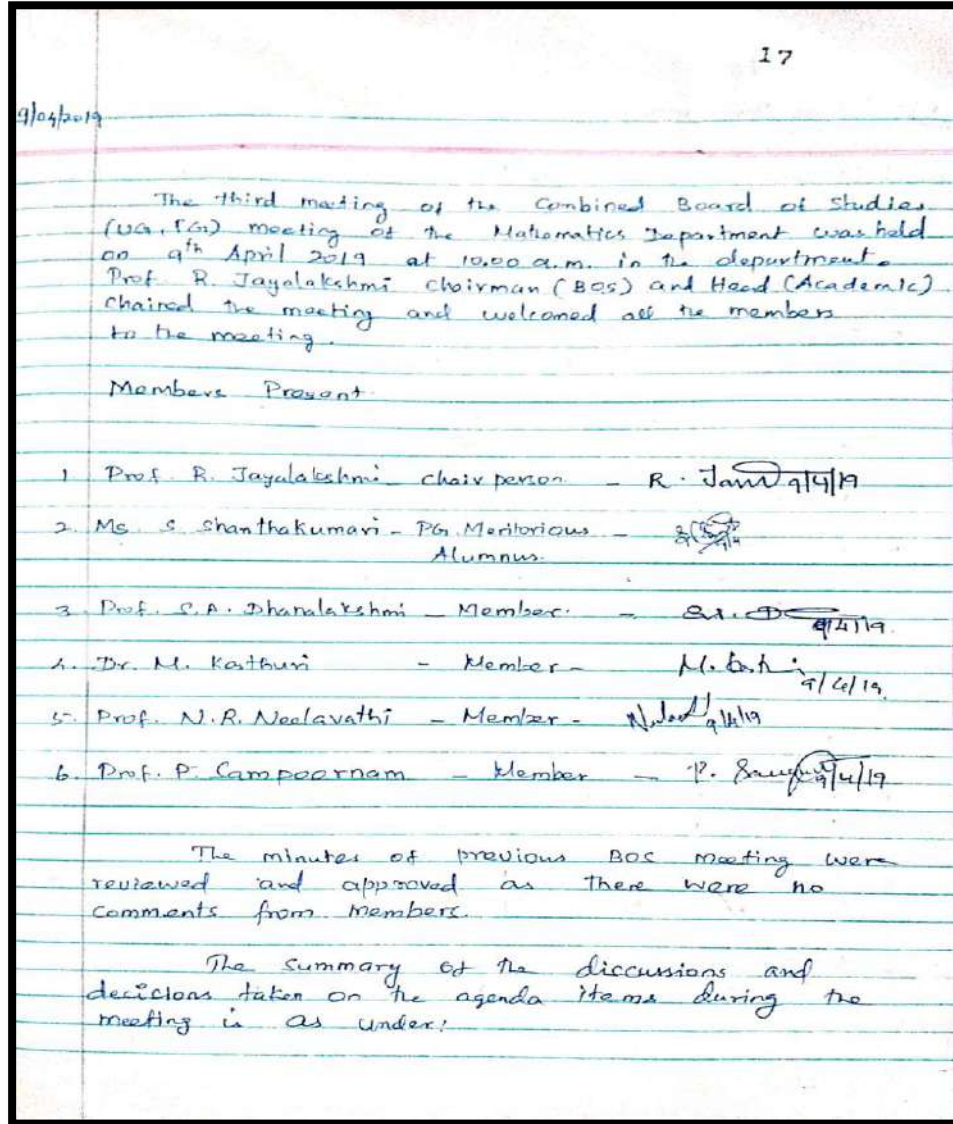 17
9/04/2019
The third meeting of the Combined Board of Studies
(UG, PG) meeting of the Mathematics Department was held
on 9th April 2019 at 10.00 a.m. in the department.
Prof. R. Jayalakshmi Chairman (BOS) and Head (Academic)
chaired the meeting and welcomed all the members
to the meeting.
Members Present
1. Prof. R. Jayalakshmi - Chair person - R. 9/4/19
2. Ms. S. Shanthakumari - PG Meritorious -
Alumnus.
3. Prof. S.A. Dhanalakshmi - Member - 9/4/19
4. Dr. M. Kasthuri - Member - M. 9/4/19
5. Prof. N.R. Neelavathi - Member - 9/4/19
6. Prof. P. Sampoornam - Member - P. 9/4/19
The minutes of previous BOS meeting were
reviewed and approved as there were no
comments from members.
The summary of the discussions and
decisions taken on the agenda items during the
meeting is as under: